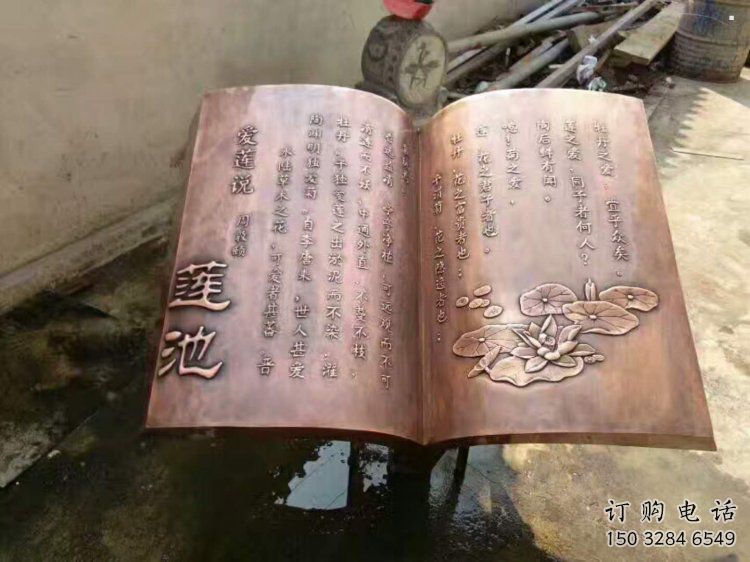 莲池
爱莲说 周敦颐
水陆草木之花,可爱者甚蕃。
陶渊明独爱菊。自李唐来,世人甚爱
牡丹。予独爱莲之出淤泥而不染,濯
清涟而不妖,中通外直,不蔓不枝,
香远益清,亭亭净植,可远观而不可
予谓菊,花之隐逸者也;
牡丹,花之富贵者也;
莲,花之君子者也。
噫!菊之爱,
陶后鲜有闻。
莲之爱,同予者何人?
牡丹之爱,宜乎众矣。
订购电话
150 3284 6549